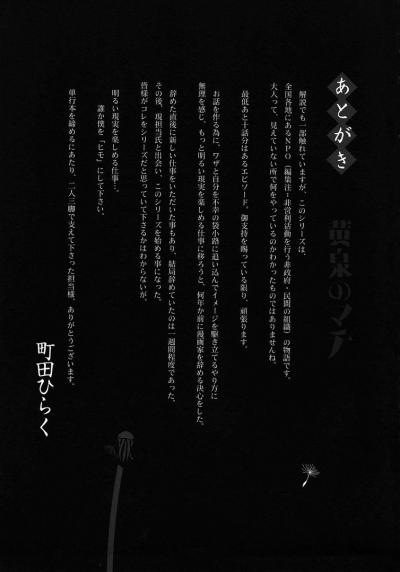 あとがき
黄泉のマチ
解説でも一部触れていますが、このシリーズは、
全国各地にあるNPO(編集注:非営利活動を行う非政府・民間の組織)の物語です。
大人って、見えていない所で何をやっているのかわかったものではありませんね。
最低あと十話分はあるエピソード。御支持を賜っている限り、頑張ります。
お話を作る為に、ワザと自分を不幸の袋小路に追い込んでイメージを駆き立てるやり方に
無理を感じ、もっと明るい現実を楽しめる仕事に移ろうと、何年か前に漫画家を辞める決心をした。
辞めた直後に新しい仕事をいただいた事もあり、結局辞めていたのは一週間程度であった。
その後、現担当氏と出会い、このシリーズを始める事になった。
皆様がコレをシリーズだと思っていて下さるかはわからないが、
明るい現実を楽しめる仕事…。
誰か僕を「ヒモ」にして下さい。
単行本を締めるにあたり、二人三脚で支えて下さった担当様、ありがとうございます。
町田ひらく